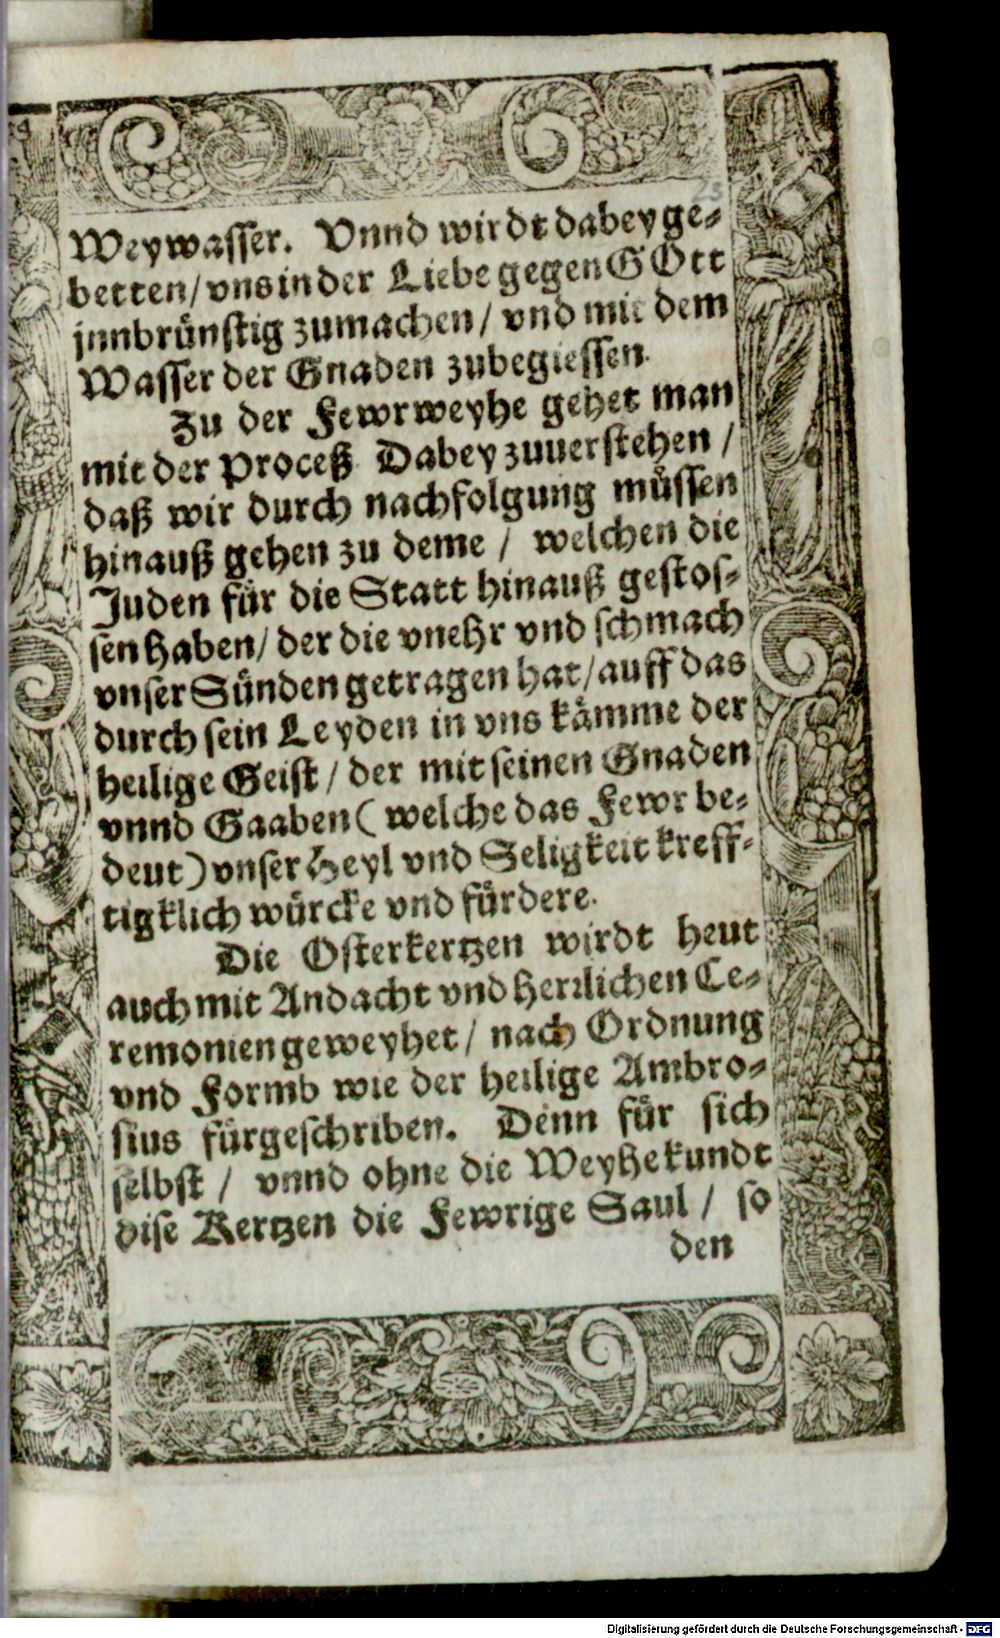 23
Weywasser. Vnnd wirdt dabey ge-
betten/ vns in der Liebe gegen GOtt
jnnbrünstig zumachen/ vnd mit dem
Wasser der Gnaden zubegiessen.
Zu der Fewrweyhe gehet man
mit der Proceß Dabey zuuerstehen /
daß wir durch nachfolgung müssen
hinauß gehen zu deme / welchen die
Juden für die Statt hinauß gestos-
sen haben/ der die vnehr vnd schmach
vnser Sünden getragen hat/ auff das
durch sein Leyden in vns kämme der
heilige Geist / der mit seinen Gnaden
vnnd Gaaben ( welche das Fewr be-
deut ) vnser Heyl vnd Seligkeit kreff-
tigklich würcke vnd fürdere.
Die Osterkertzen wirdt heut
auch mit Andacht vnd herrlichen Ce-
remonien geweyhet / nach Ordnung
vnd Formb wie der heilige Ambro-
sius fürgeschriben. Denn für sich
selbst / vnnd ohne die Weyhe kundt
dise Kertzen die Fewrige Saul / so
den
Digitalisierung gefördert durch die Deutsche Forschungsgemeinschaft - DFG